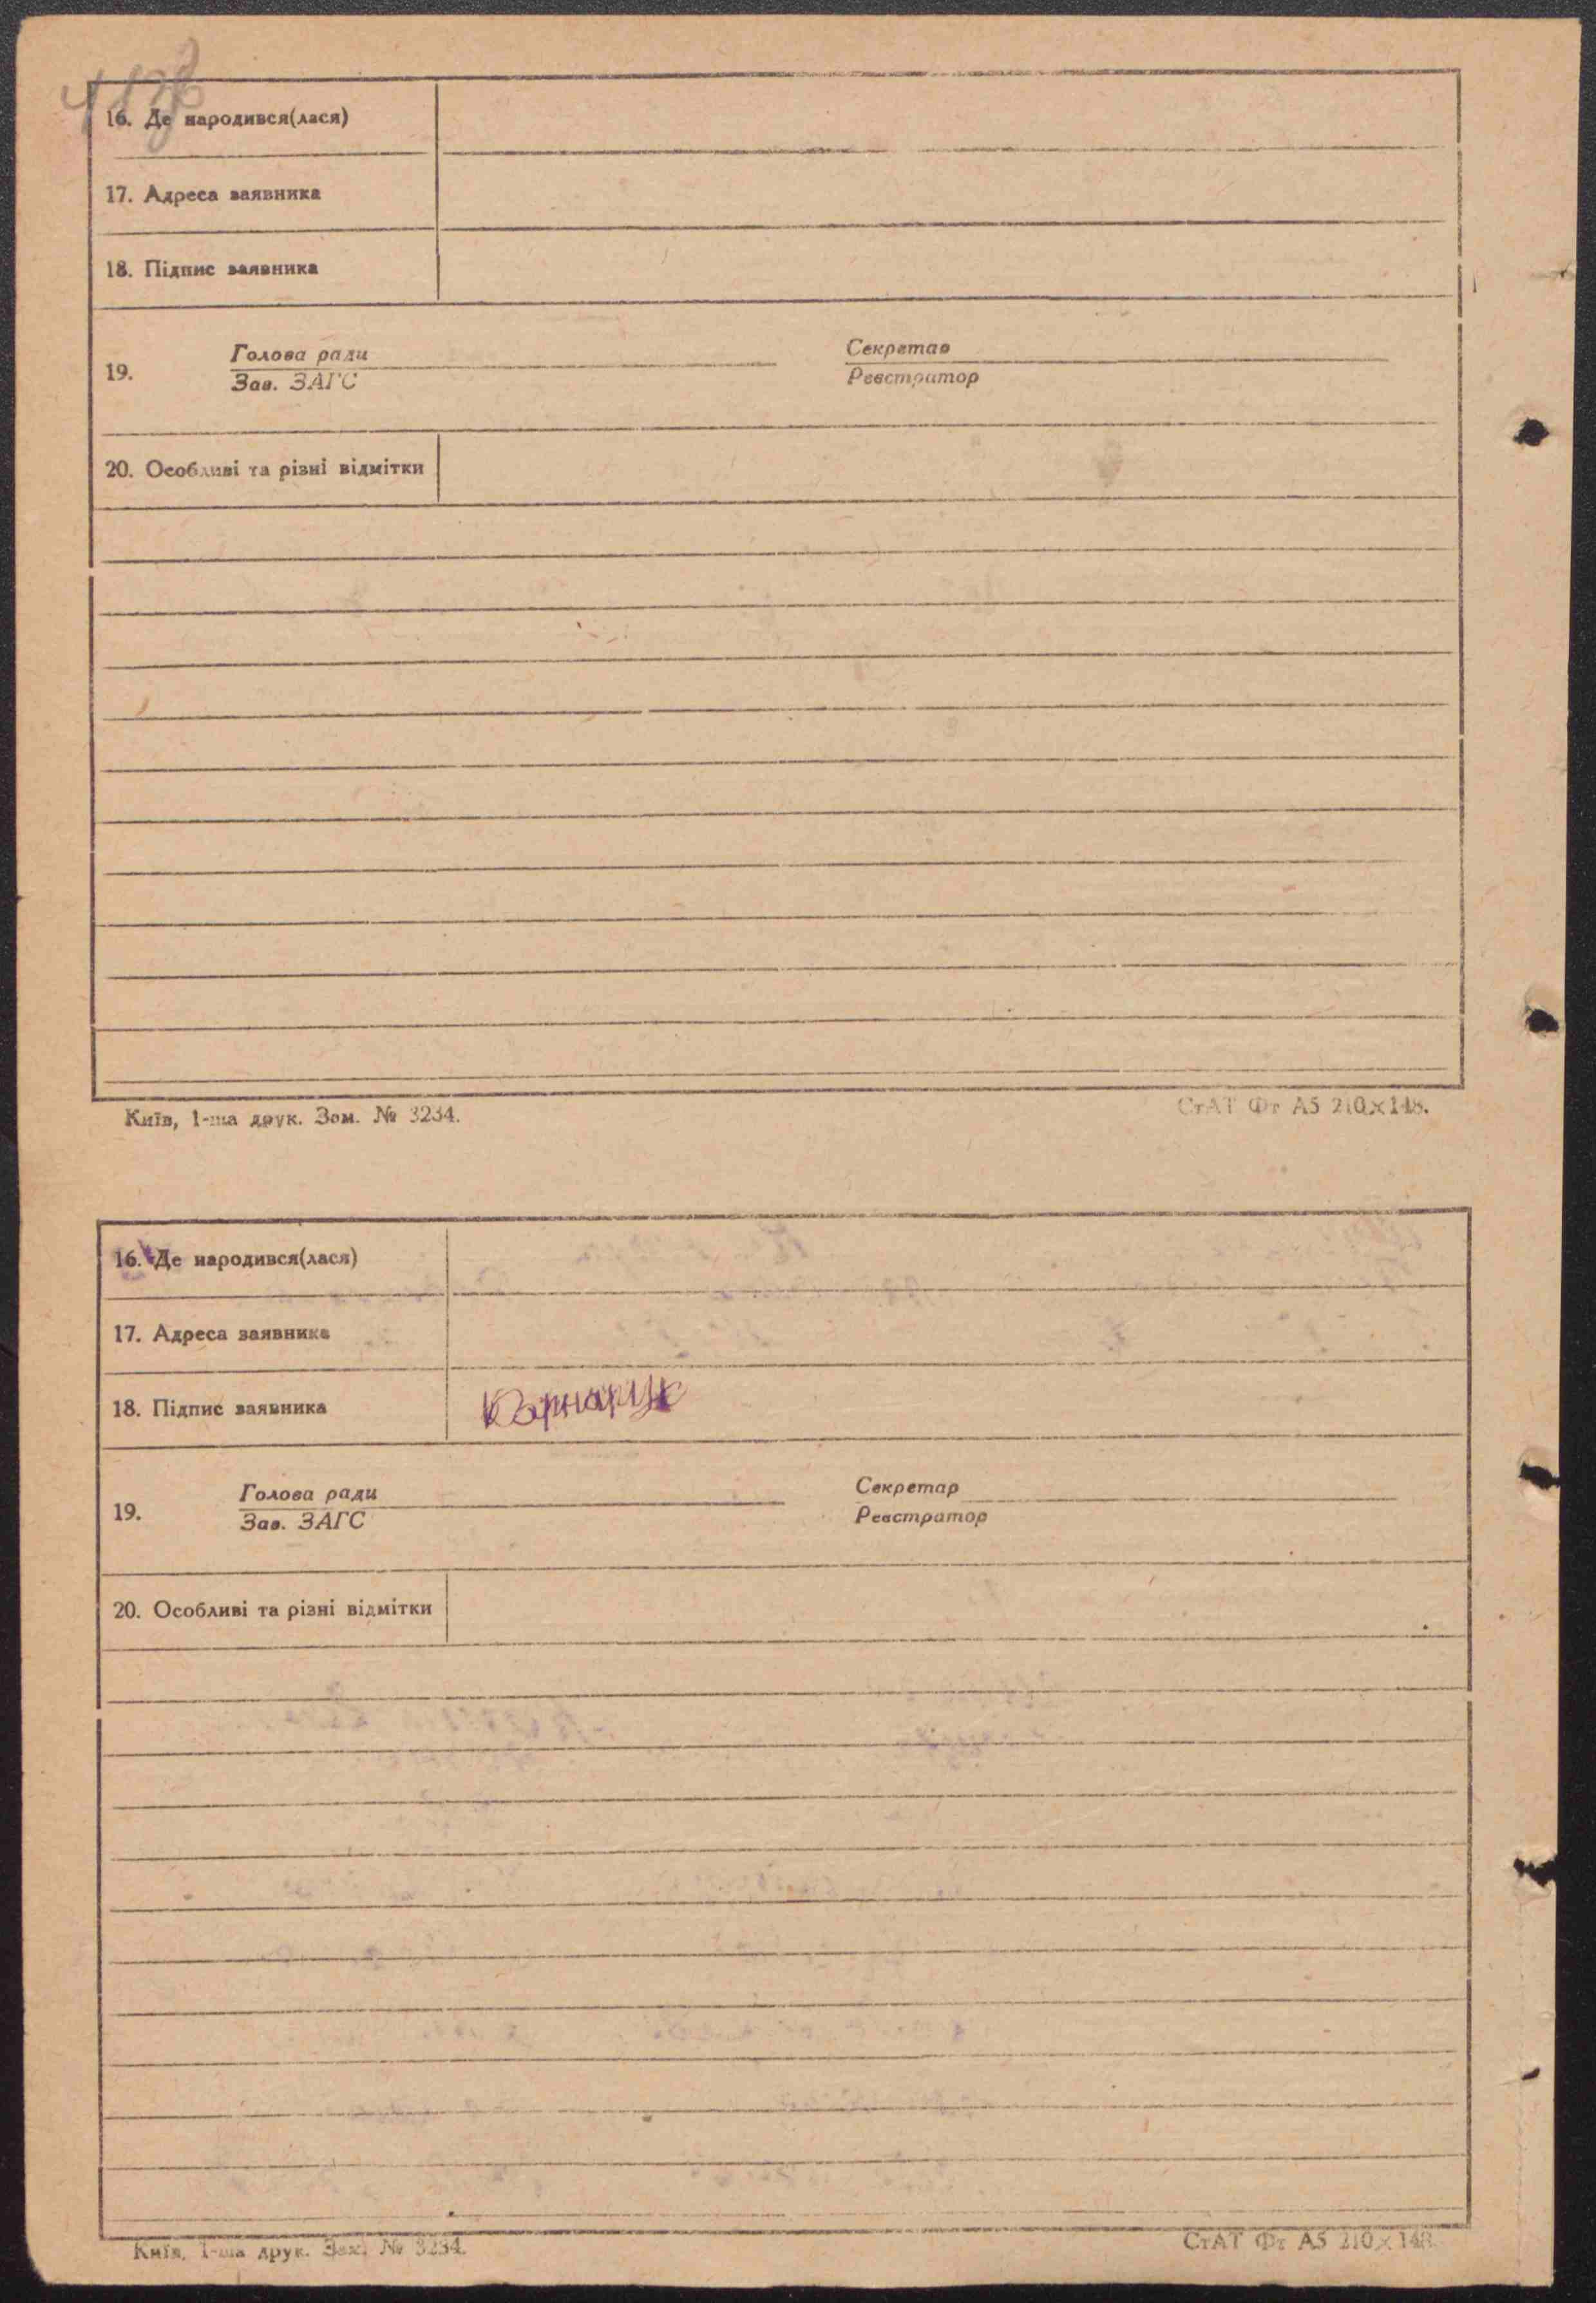 16. Де народився(лася)
17. Адреса заявника
18. Підпис заявника
19.
Голова ради
Зав. ЗАГС
Секретар
Реєстратор
20. Особливі та різні відмітки
Київ, 1-ша друк. Зам. № 3234.
СтАТ Фт А5 210×148.
16. Де народився(лася)
17. Адреса заявника
18. Підпис заявника
19.
Голова ради
Зав. ЗАГС
Секретар
Реєстратор
20. Особливі та різні відмітки
Київ, 1-ша друк. Зам. № 3234.
СтАТ Фт А5 210×148.